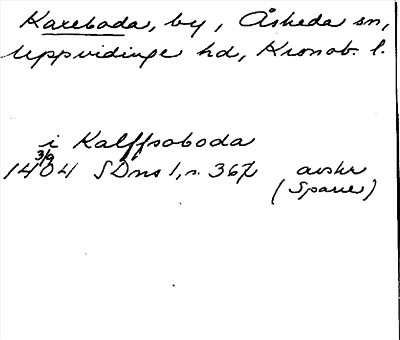 Kareboda, by, Åsheda sn,
Uppvidinge hd, Kronob. l.
i Kalffsoboda
3/9
1404 SDns 1, s. 367 avskr
(Sparre)